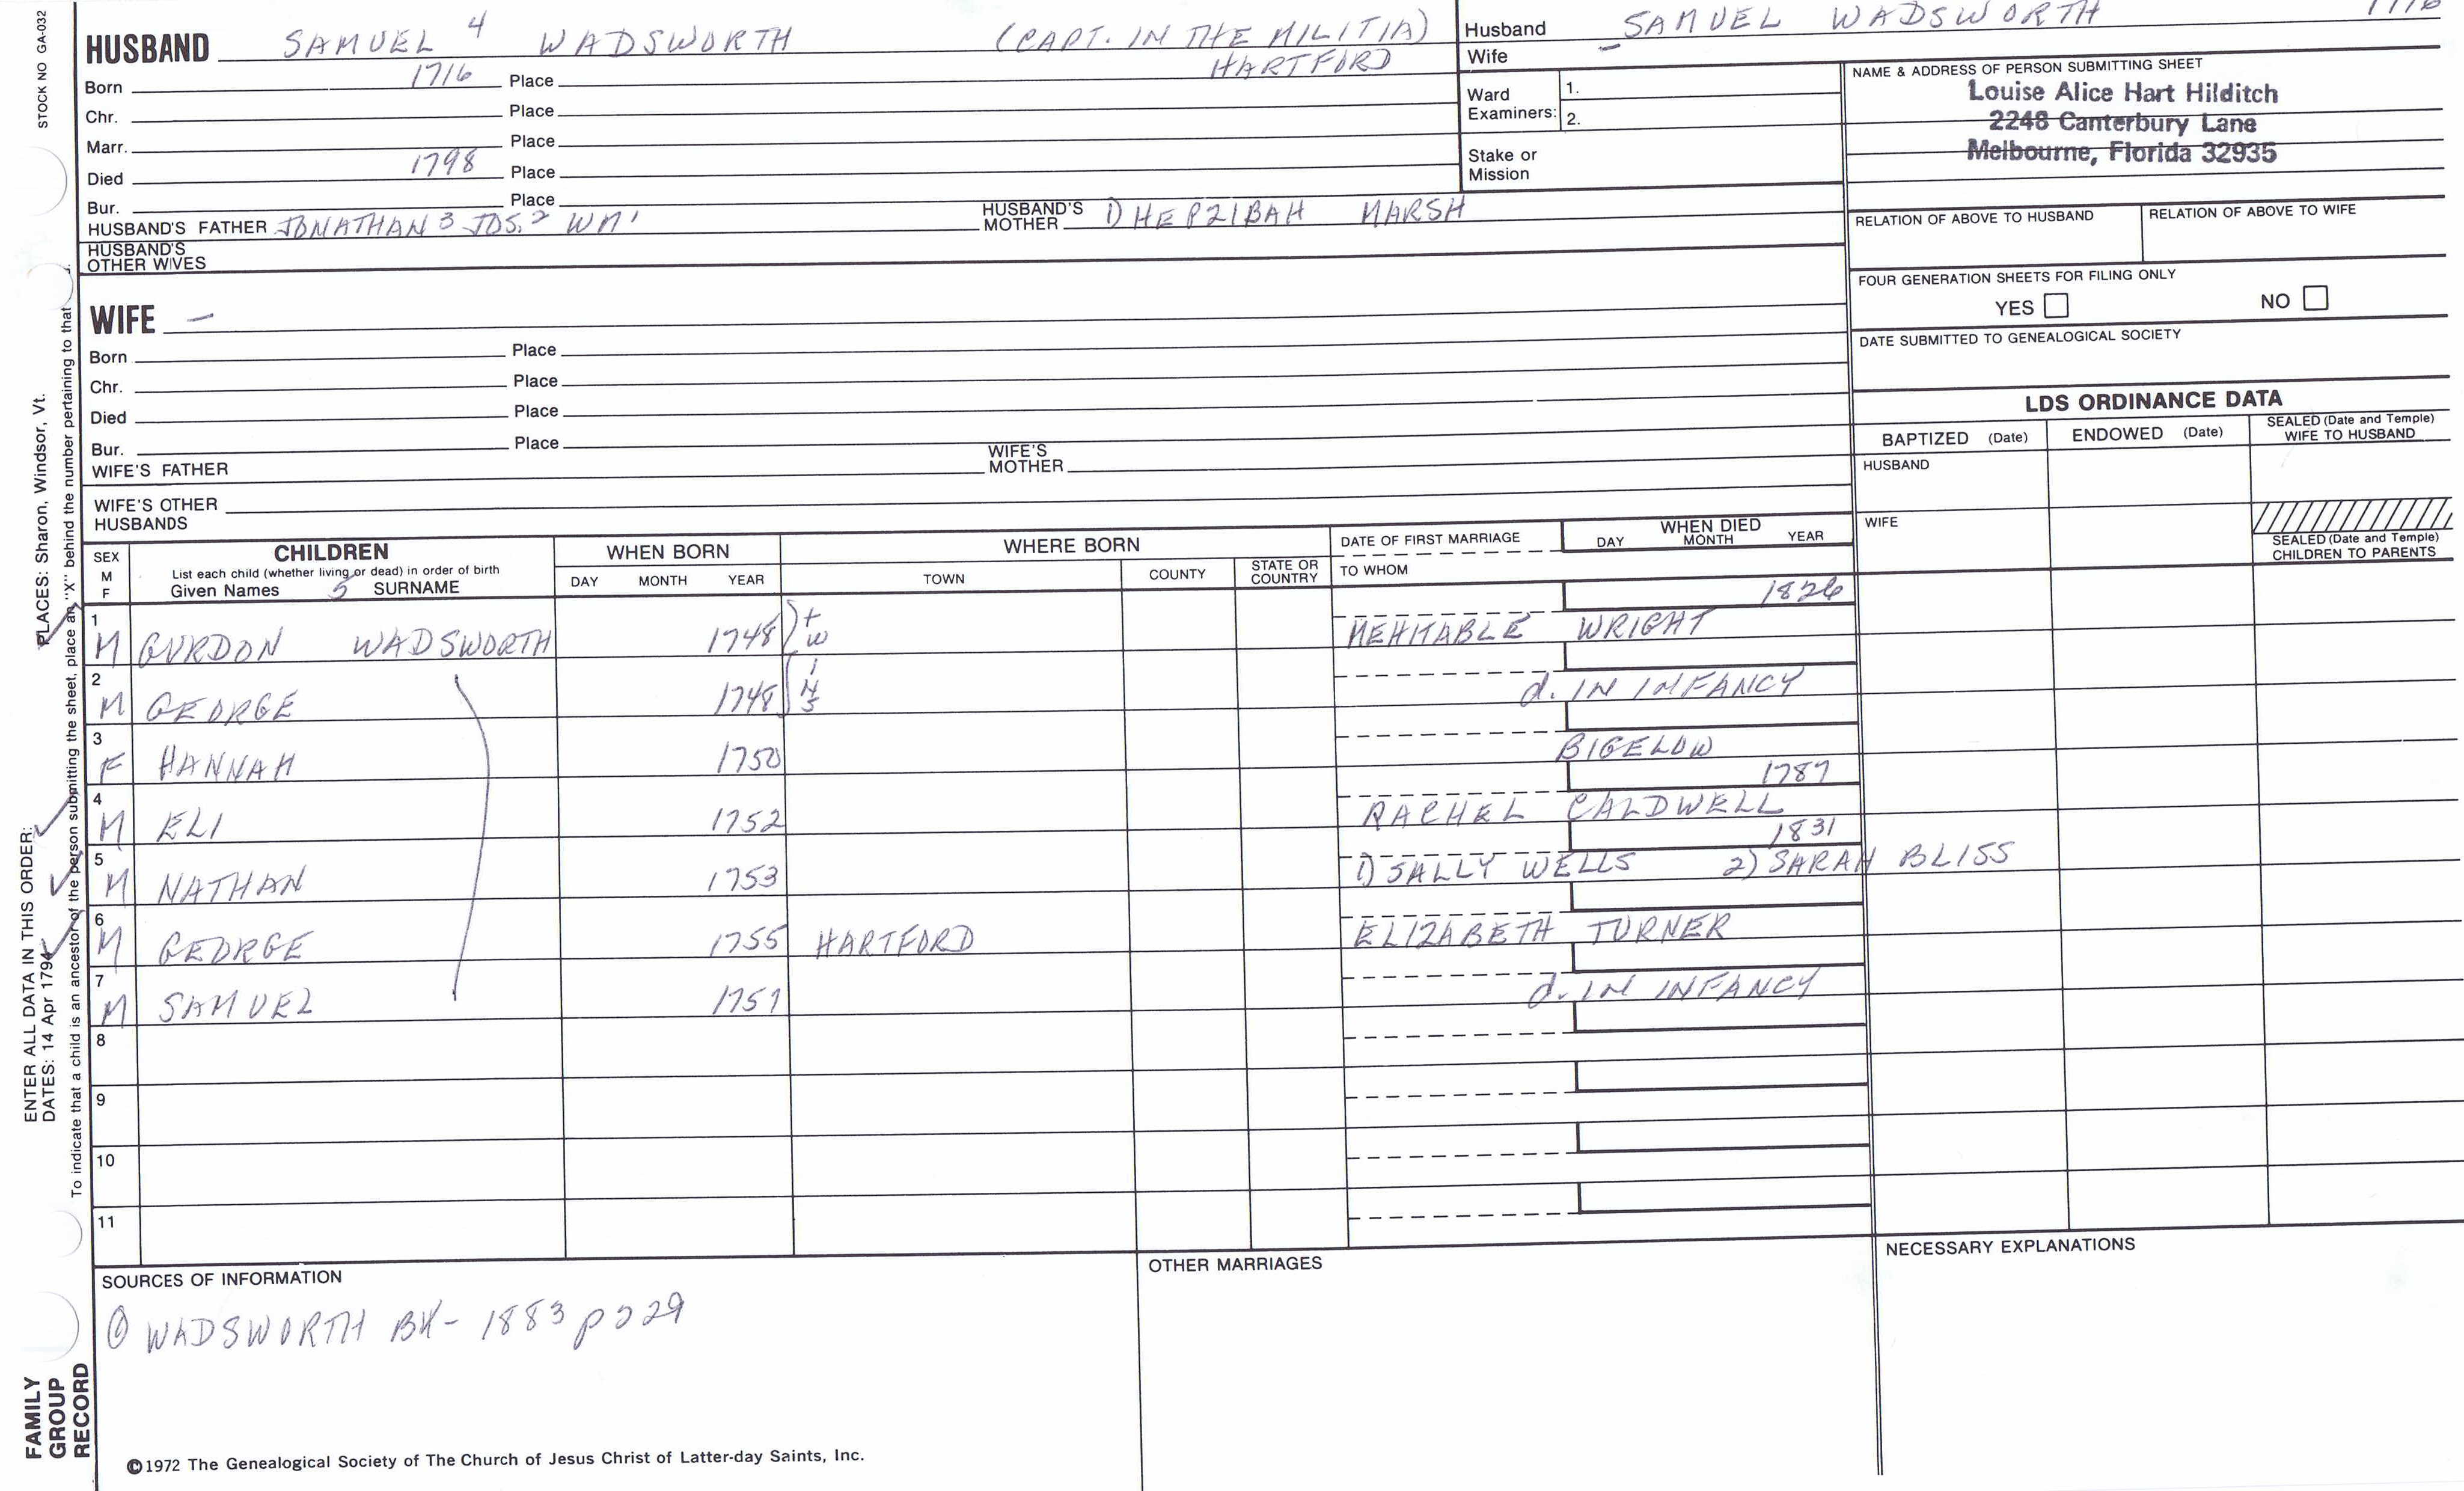 STOCK NO GA-032
HUSBAND SAMUEL 4 WADSWORTH (CAPT. IN THE MILITIA)
HARTFORD
Born 1716 Place
Chr. Place
Marr. Place
Died 1798 Place
Bur. Place
HUSBAND'S FATHER JONATHAN 3 JOS. 2 WM 1 HUSBAND'S MOTHER 1) HEPZIBAH MARSH
HUSBAND'S
OTHER WIVES
Husband SAMUEL WADSWORTH 1716
Wife
Ward
Examiners:
1.
2.
Stake or
Mission
NAME & ADDRESS OF PERSON SUBMITTING SHEET
Louise Alice Hart Hilditch
2248 Canterbury Lane
Melbourne, Florida 32935
RELATION OF ABOVE TO HUSBAND RELATION OF ABOVE TO WIFE
FOUR GENERATION SHEETS FOR FILING ONLY
YES NO
DATE SUBMITTED TO GENEALOGICAL SOCIETY
WIFE –
Born Place
Chr. Place
Died Place
Bur. Place
WIFE'S FATHER WIFE'S MOTHER
WIFE'S OTHER
HUSBANDS
LDS ORDINANCE DATA
BAPTIZED (Date) ENDOWED (Date) SEALED (Date and Temple) WIFE TO HUSBAND
HUSBAND
WIFE
SEALED (Date and Temple)
CHILDREN TO PARENTS
SEX
M
F
CHILDREN
List each child (whether living or dead) in order of birth
Given Names 5 SURNAME
WHEN BORN
DAY MONTH YEAR
WHERE BORN
TOWN COUNTY STATE OR COUNTRY
DATE OF FIRST MARRIAGE
TO WHOM
WHEN DIED
DAY MONTH YEAR
1826
1 M GURDON WADSWORTH 1748 tw MEHITABLE WRIGHT
2 M GEORGE 1748 ins d. IN INFANCY
3 F HANNAH 1750 BIGELOW
1787
4 M ELI 1752 RACHEL CALDWELL
1831
5 M NATHAN 1753 1) SALLY WELLS 2) SARAH BLISS
6 M GEORGE 1755 HARTFORD ELIZABETH TURNER
7 M SAMUEL 1757 d. IN INFANCY
8
9
10
11
SOURCES OF INFORMATION
① WADSWORTH BK- 1883 p 229
OTHER MARRIAGES
NECESSARY EXPLANATIONS
©1972 The Genealogical Society of The Church of Jesus Christ of Latter-day Saints, Inc.
FAMILY
GROUP
RECORD
ENTER ALL DATA IN THIS ORDER:
DATES: 14 Apr 1794
PLACES: Sharon, Windsor, Vt.
To indicate that a child is an ancestor of the person submitting the sheet, place an "X" behind the number pertaining to that